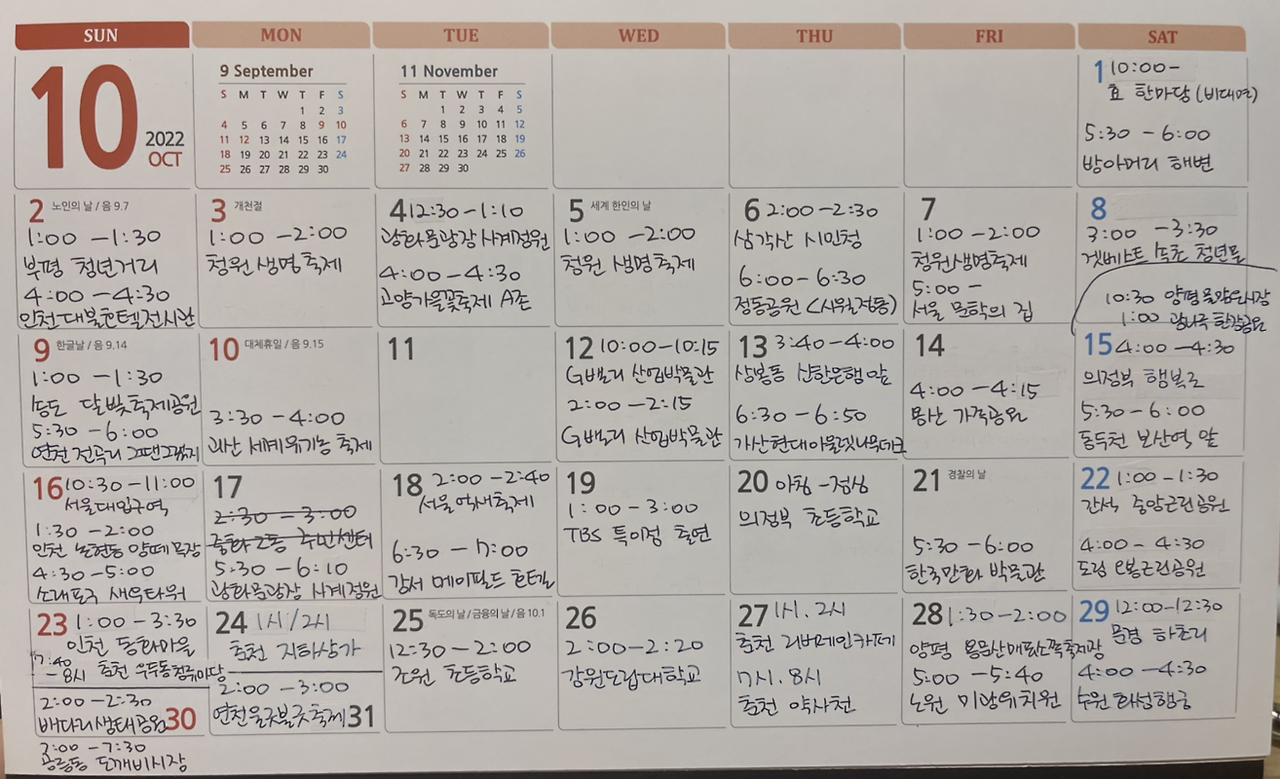 SUN MON TUE WED THU FRI SAT
10 2022 OCT
9 September
S M T W T F S
1 2 3
4 5 6 7 8 9 10
11 12 13 14 15 16 17
18 19 20 21 22 23 24
25 26 27 28 29 30
11 November
S M T W T F S
1 2 3 4 5
6 7 8 9 10 11 12
13 14 15 16 17 18 19
20 21 22 23 24 25 26
27 28 29 30
1 10:00-
효 한마당 (비대면)
5:30 - 6:00
방아머리 해변
2 노인의 날 / 음 9.7
1:00 - 1:30
부평 청년거리
4:00 - 4:30
인천대불호텔전시관
3 개천절
1:00 - 2:00
청원생명축제
4 12:30 - 1:10
광화문광장 사계정원
4:00 - 4:30
고양가을꽃축제 A존
5 세계 한인의 날
1:00 - 2:00
청원 생명축제
6 2:00 - 2:30
삼각산 시민청
6:00 - 6:30
정동공원 (시월정동)
7
1:00 - 2:00
청원생명축제
5:00 -
서울 문학의 집
8
3:00 - 3:30
겟베스트 속초 청년몰
10:30 양평
1:00 한강공원
9 한글날 / 음 9.14
1:00 - 1:30
송도 달빛축제공원
5:30 - 6:00
연천 전곡리
10 대체휴일 / 음 9.15
3:30 - 4:00
괴산 세계유기농 축제
11
12 10:00 - 10:15
G밸리 산업박물관
2:00 - 2:15
G밸리 산업박물관
13 3:40 - 4:00
상봉동 신한은행 앞
6:30 - 6:50
가산현대아울렛
14
4:00 - 4:15
용산 가족공원
15 4:00 - 4:30
의정부 행복로
5:30 - 6:00
동두천 보산역 앞
16 10:30 - 11:00
서울대입구역
1:30 - 2:00
인천 논현동 양떼목장
4:30 - 5:00
소래포구 새우타워
17
2:30 - 3:00
중화2동 주민센터
5:30 - 6:10
광화문광장 사계정원
18 2:00 - 2:40
서울억새축제
6:30 - 7:00
강서 메이필드 호텔
19
1:00 - 3:00
TBS 특이점 출연
20 아침 - 점심
의정부 초등학교
21 경찰의 날
5:30 - 6:00
한국만화 박물관
22 1:00 - 1:30
간석 중앙근린공원
4:00 - 4:30
도림 근린공원
23 1:00 - 3:30
인천 동화마을
7:40
- 8시 춘천 우두동
24 1시/2시
춘천 지하상가
25 독도의 날 / 금융의 날 / 음 10.1
12:30 - 2:00
조원 초등학교
26
2:00 - 2:20
강원도립대학교
27 1시. 2시
춘천 리버레인카페
7시. 8시
춘천 약사천
28 1:30 - 2:00
양평 용문산
5:00 - 5:40
노원 미랑유치원
29 12:00 - 12:30
문경 하초리
4:00 - 4:30
수원 화성행궁
2:00 - 2:30
배다리생태공원 30
7:00 - 7:30
공릉동 도깨비시장
2:00 - 3:00
연천울긋불긋축제 31